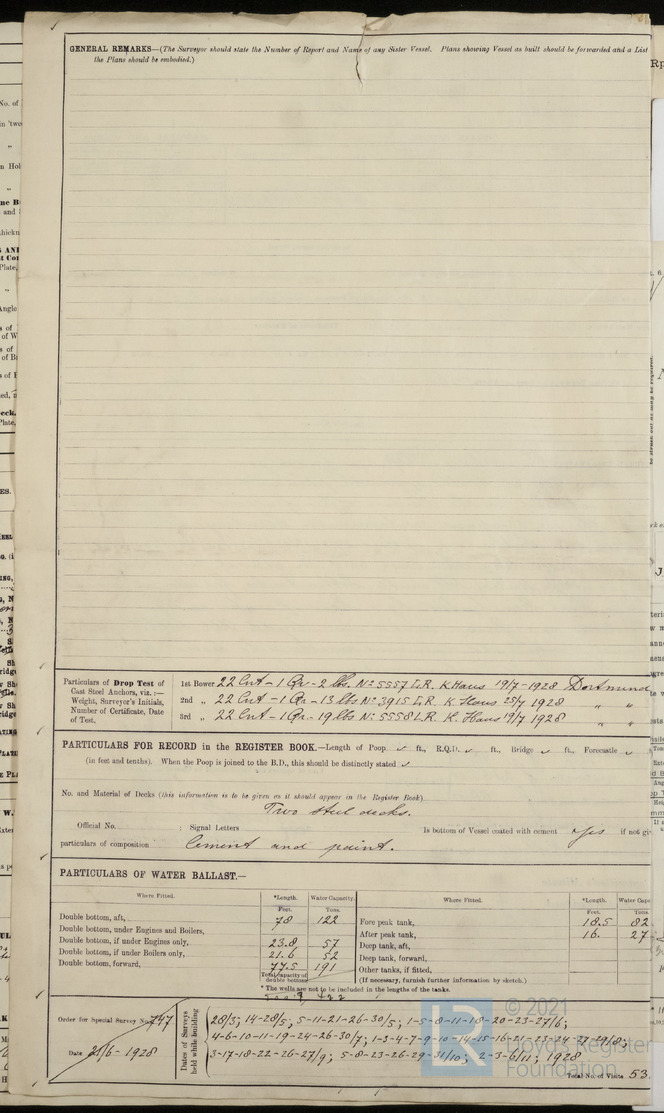 GENERAL REMARKS—(The Surveyor should state the Number of Report and Name of any Sister Vessel. Plans showing Vessel as built should be forwarded and a List
the Plans should be embodied.)
Particulars of Drop Test of
Cast Steel Anchors, viz. :—
Weight, Surveyor's Initials,
Number of Certificate, Date
of Test.
1st Bower 22 Cwt - 1 Qr - 2 lbs. No 5557 L.R. K. Haus 19/7 - 1928 Dortmund
2nd „ 22 Cwt - 1 Qr - 13 lbs No 3915 L.R. K. Haus 25/7 1928 „ „
3rd „ 22 Cwt - 1 Qr - 19 lbs No 5558 L.R. K. Haus 19/7 1928 „ „
PARTICULARS FOR RECORD in the REGISTER BOOK.—Length of Poop ✓ ft., R.Q.D. ✓ ft., Bridge ✓ ft., Forecastle ✓
(in feet and tenths). When the Poop is joined to the B.D., this should be distinctly stated ✓
No. and Material of Decks (this information is to be given as it should appear in the Register Book)
Two steel decks.
Official No. ; Signal Letters Is bottom of Vessel coated with cement Yes if not gi
particulars of composition Cement and paint.
PARTICULARS OF WATER BALLAST.—
Where Fitted. *Length. Water Capacity. Where Fitted. *Length. Water Capa
Feet. Tons. Feet. Tons.
Double bottom, aft, 78 122 Fore peak tank, 18.5 82
Double bottom, under Engines and Boilers, After peak tank, 16. 27
Double bottom, if under Engines only, 23.8 57 Deep tank, aft,
Double bottom, if under Boilers only, 21.6 52 Deep tank, forward,
Double bottom, forward, 77.5 191 Other tanks, if fitted,
Total capacity of double bottom (If necessary, furnish further information by sketch.)
* The wells are not to be included in the lengths of the tanks.
422
Order for Special Survey No. 747
Date 21/6 - 1928
Dates of Surveys held while building
28/3; 14-28/5; 5-11-21-26-30/5; 1-5-8-11-18-20-23-27/6;
4-6-10-11-19-24-26-30/7; 1-3-4-7-9-10-14-15-16-21-23-24-27-29/8;
3-17-18-22-26-27/9; 5-8-23-26-29-31/10; 2-3-6/11; 1928
Total No. of Visits 53.
© 2021
Lloyd's Register
Foundation